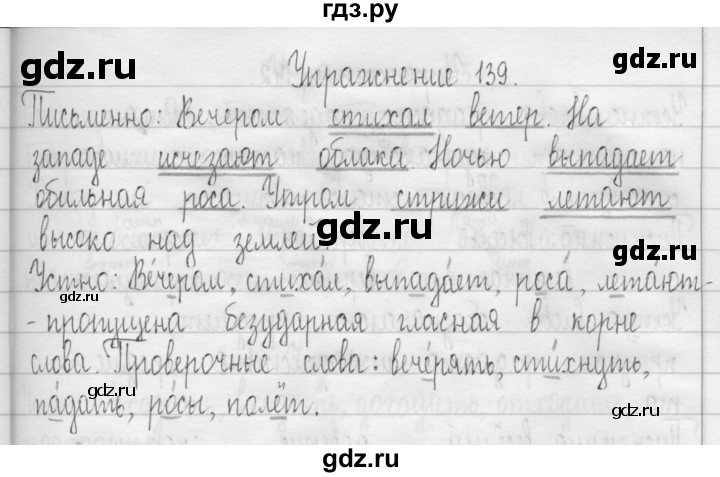 гдз.ру
gdz.ru
gdz.ru
Упражнение 139.
Письменно: Вечером стихал ветер. На
западе исчезают облака. Ночью выпадает
gdz.ru
обильная роса. Утром стрижи летают
gdz.ru
высоко над землей.
Устно: Ве́чером, стихал, выпада́ет, роса́, лета́ют-
gdz.ru
gdz.ru
- пропущена безударная гласная в корне
слова. Проверочные слова: вече́рять, сти́хнуть,
gdz.ru
gdz.ru
па́дать, ро́сы, полёт.
gdz.ru
gdz.ru
gdz.ru